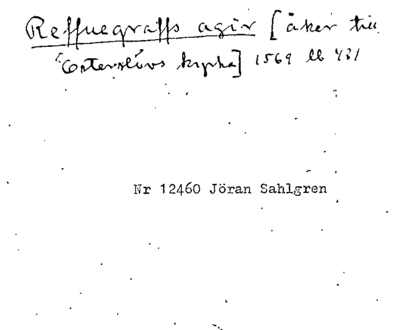 Reffuegraffs agir [åker till
Österslövs kyrka] 1569 ll 431
Nr 12460 Jöran Sahlgren